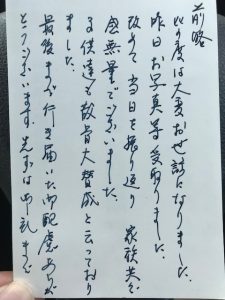 前略
此の度は大変お世話になりました。
昨日お写真等受取りました。
改めて当日を振り返り 家族共々
感無量でございました。
子供達も数育大賛成と云っており
ました。
最後まで行き届いた御配慮ありが
とうございます。先ずは御礼まで